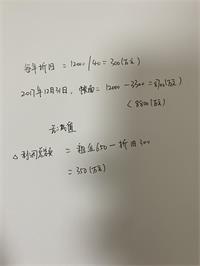 每年折旧 = 12000/40 = 300(万元)
2017年12月31日, 账面 = 12000 - 3300 = 8700(万元)
< 8800(万元)
无减值
△ 利润总额 = 租金650 - 折旧300
= 350(万元)